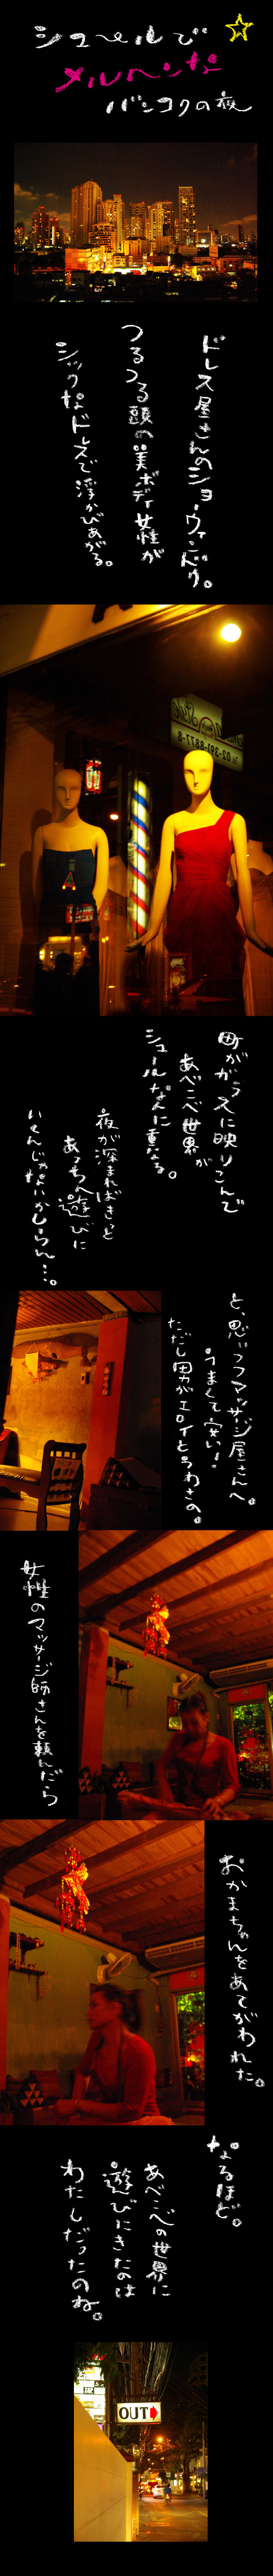 シュールで
メルヘンな
バンコクの夜
ドレス屋さんのショーウィンドウ。
つるつる頭の美ボディ女性が
シックなドレスで浮かびあがる。
02-391-8877-8
町がガラスに映りこんで
あべこべ世界が
シュールなんに重なる。
夜が深まればきっと
あっちへ遊びに
いくんじゃないかしらん…。
と、思いつつマッサージ屋さんへ。
うまくて安い！
ただし男がエロイとうわさの。
女性のマッサージ師さんを頼んだら
おかまちゃんをあてがわれた。
なるほど。
あべこべの世界に
遊びにきたのは
わたしだったのね。
OUT